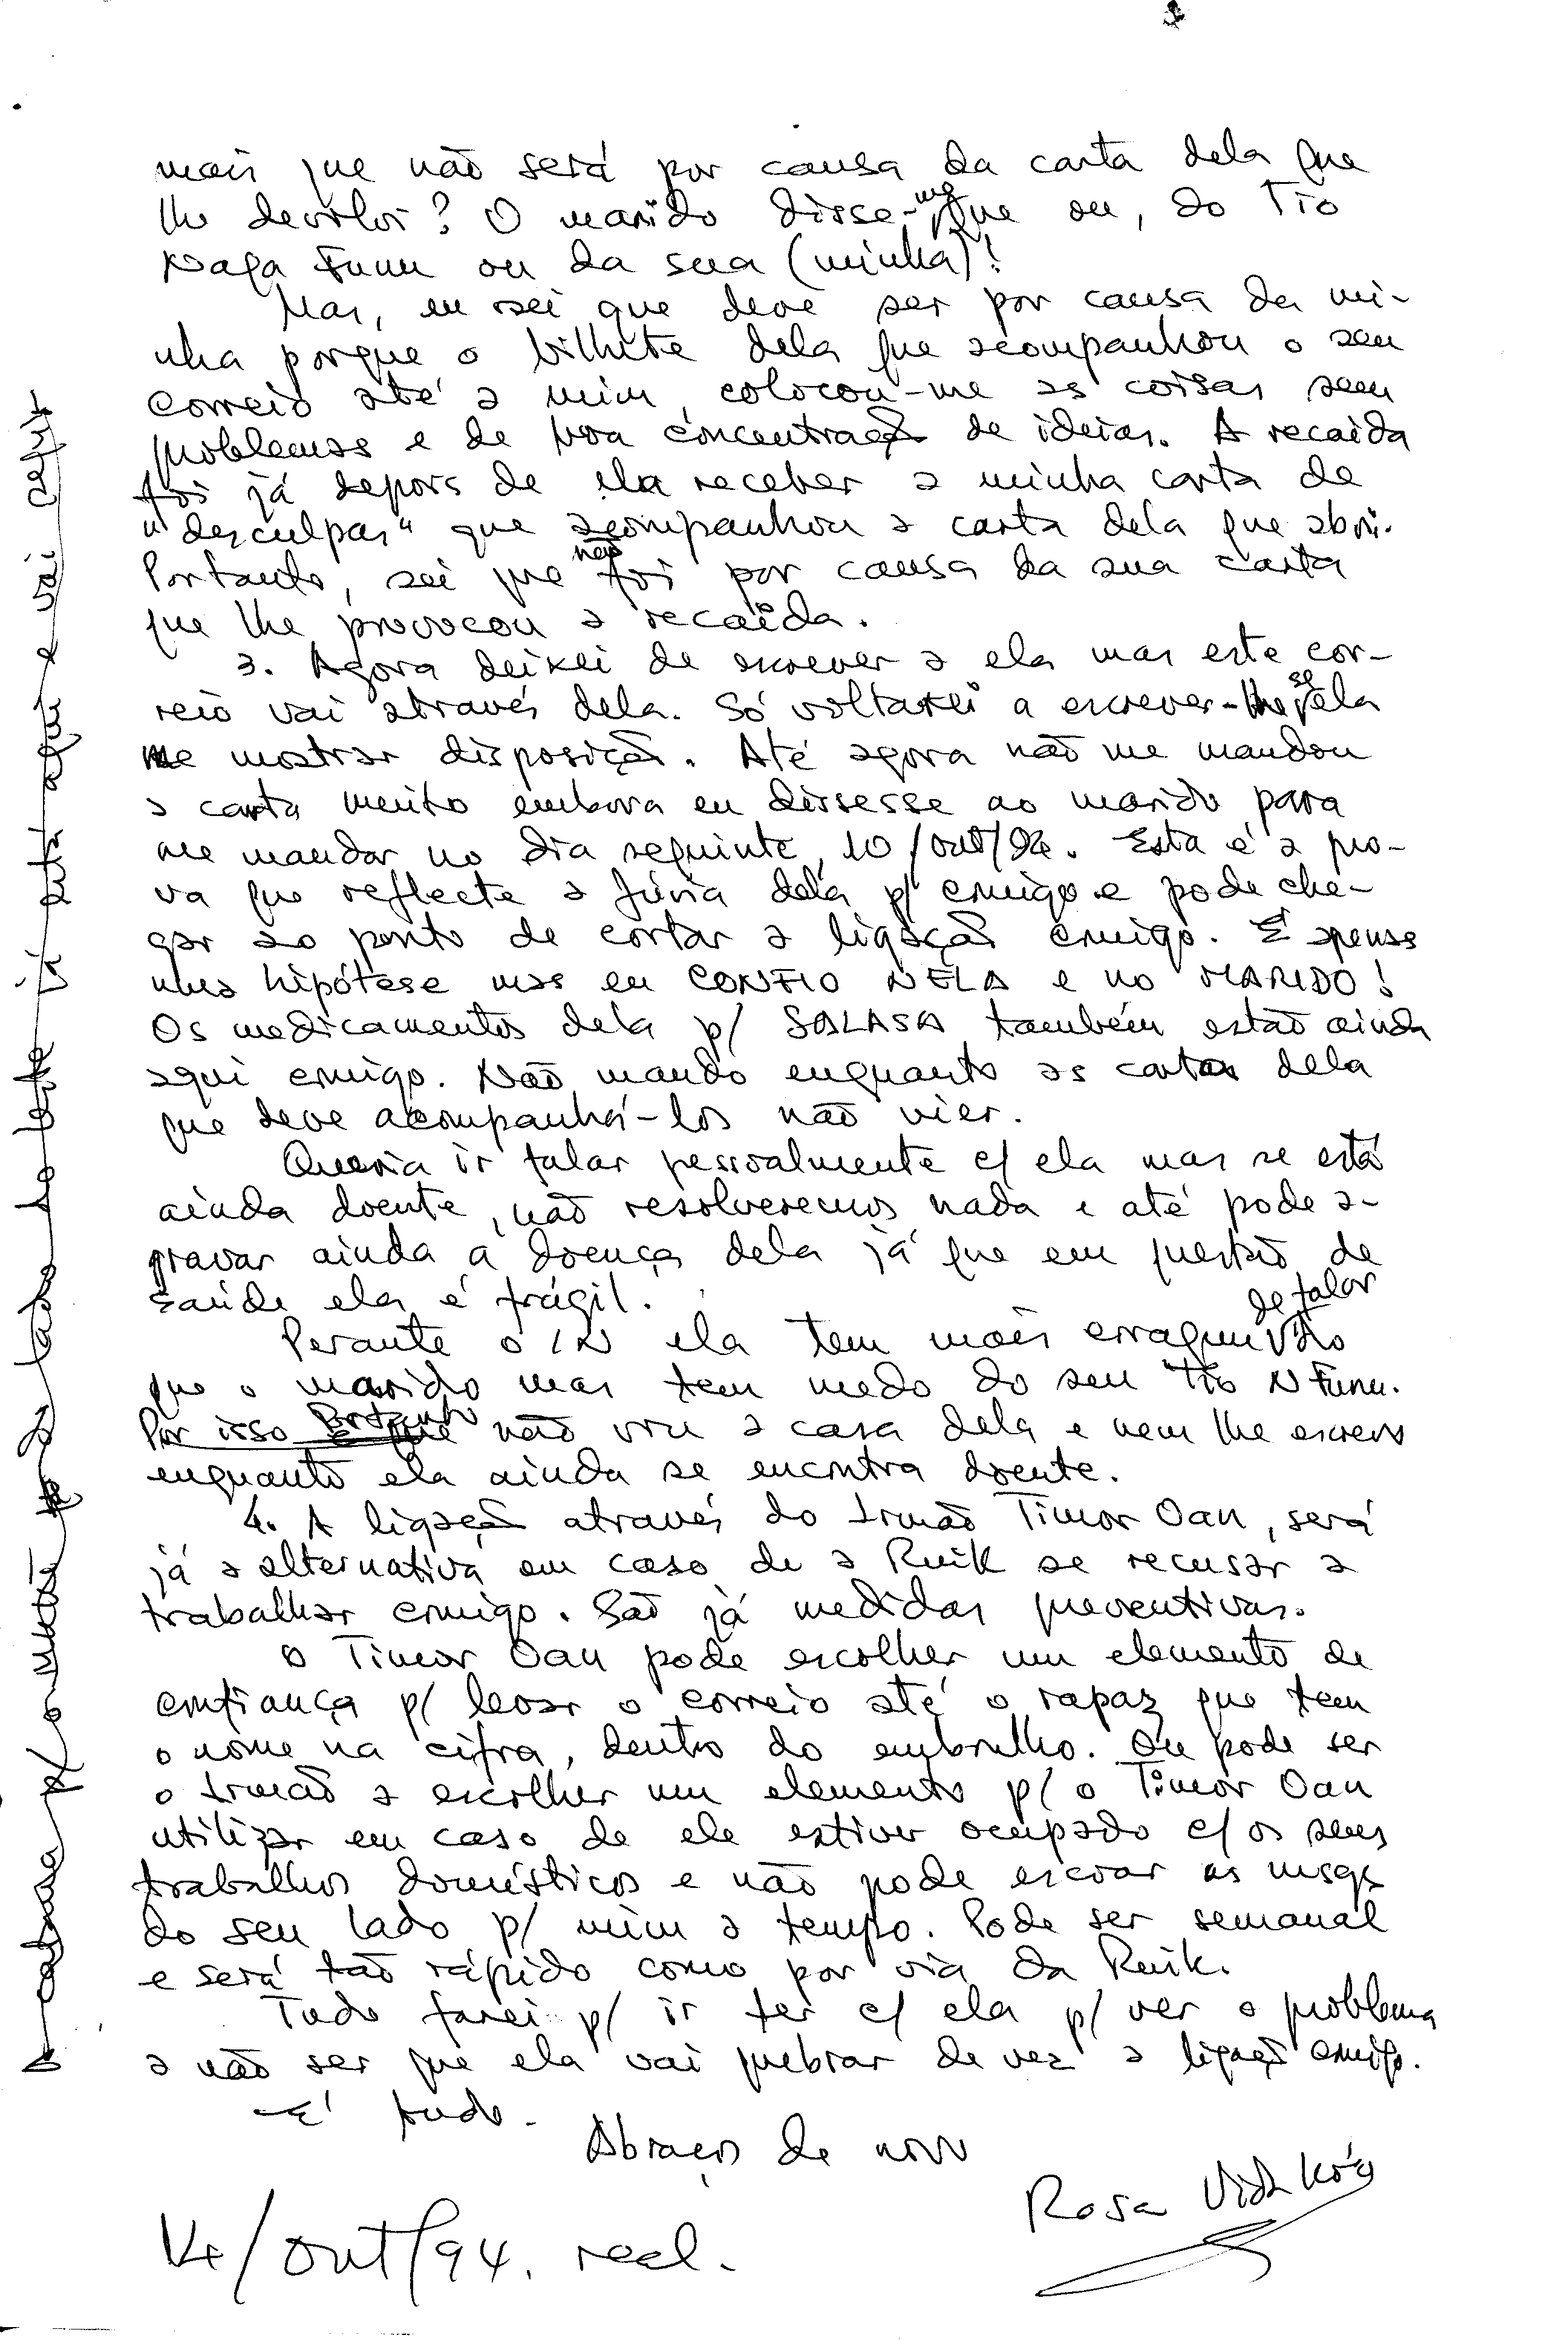 mais que não será por causa da carta dela que
lhe devolvi? O marido disse-me que ou, do Tio
ou da sua (minha)!
Mas, eu sei que deve ser por causa da mi-
nha porque o bilhete dela que acompanhou o seu
correio até a mim, colocou-me as coisas sem
problemas e de boa concentração de ideias. A recaída
foi já depois de ela receber a minha carta de
"desculpas" que acompanhou a carta dela que abri.
Portanto, sei que não foi por causa da sua carta
que lhe provocou a recaída.
3. Agora deixei de escrever a ela mas este cor-
reio vai através dela. Só voltarei a escrever-lhe se ela
me mostrar disposição. Até agora não me mandou
a carta muito embora eu dissesse ao marido para
me mandar no dia seguinte, 10/out/94. Esta é a pro-
va que reflecte a fúria dela p/ comigo e pode che-
gar ao ponto de cortar a ligação comigo. É apenas
uma hipótese mas eu CONFIO NELA e no MARIDO!
Os medicamentos dela p/ SALASA também estão ainda
aqui comigo. Não mando enquanto as cartas dela
que deve acompanhá-los não vier.
Queria ir falar pessoalmente c/ ela mas se está
ainda doente, não resolveremos nada e até pode a-
gravar ainda a doença dela já que em questão de
saúde ela é frágil.
Perante o IN ela tem mais de falar do
que o marido mas tem medo do seu Tio N Funu.
Por isso Portanto não vou a casa dela e nem lhe escrevo
enquanto ela ainda se encontra doente.
4. A ligação através do Irmão Timor Oan, será
já a alternativa em caso de a Ruik se recusar a
trabalhar comigo. São já medidas preventivas.
O Timor Oan pode escolher um elemento de
confiança p/ levar o correio até o rapaz que tem
o nome na cifra, dentro do embrulho. Ou pode ser
o Irmão a escolher um elemento p/ o Timor Oan
utilizar em caso de ele estiver ocupado c/ os seus
trabalhos domésticos e não pode escoar as msgs
do seu lado p/ mim a tempo. Pode ser semanal
e será tão rápido como por via da Ruik.
Tudo farei p/ ir ter c/ ela p/ ver o problema
a não ser que ela vai quebrar de vez a ligação comigo.
É tudo.
Abraços de novo
Rosa
14/out/94. real.